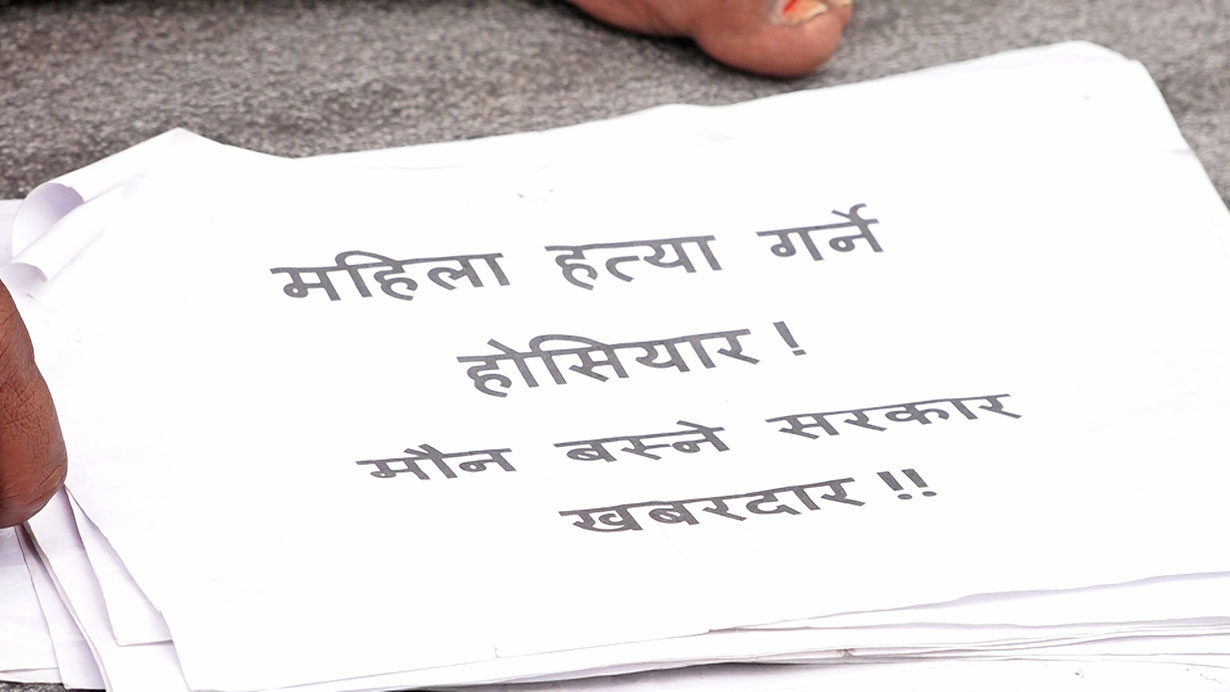 महिला हत्या गर्ने
होसियार !
मौन बस्ने सरकार
खबरदार !!